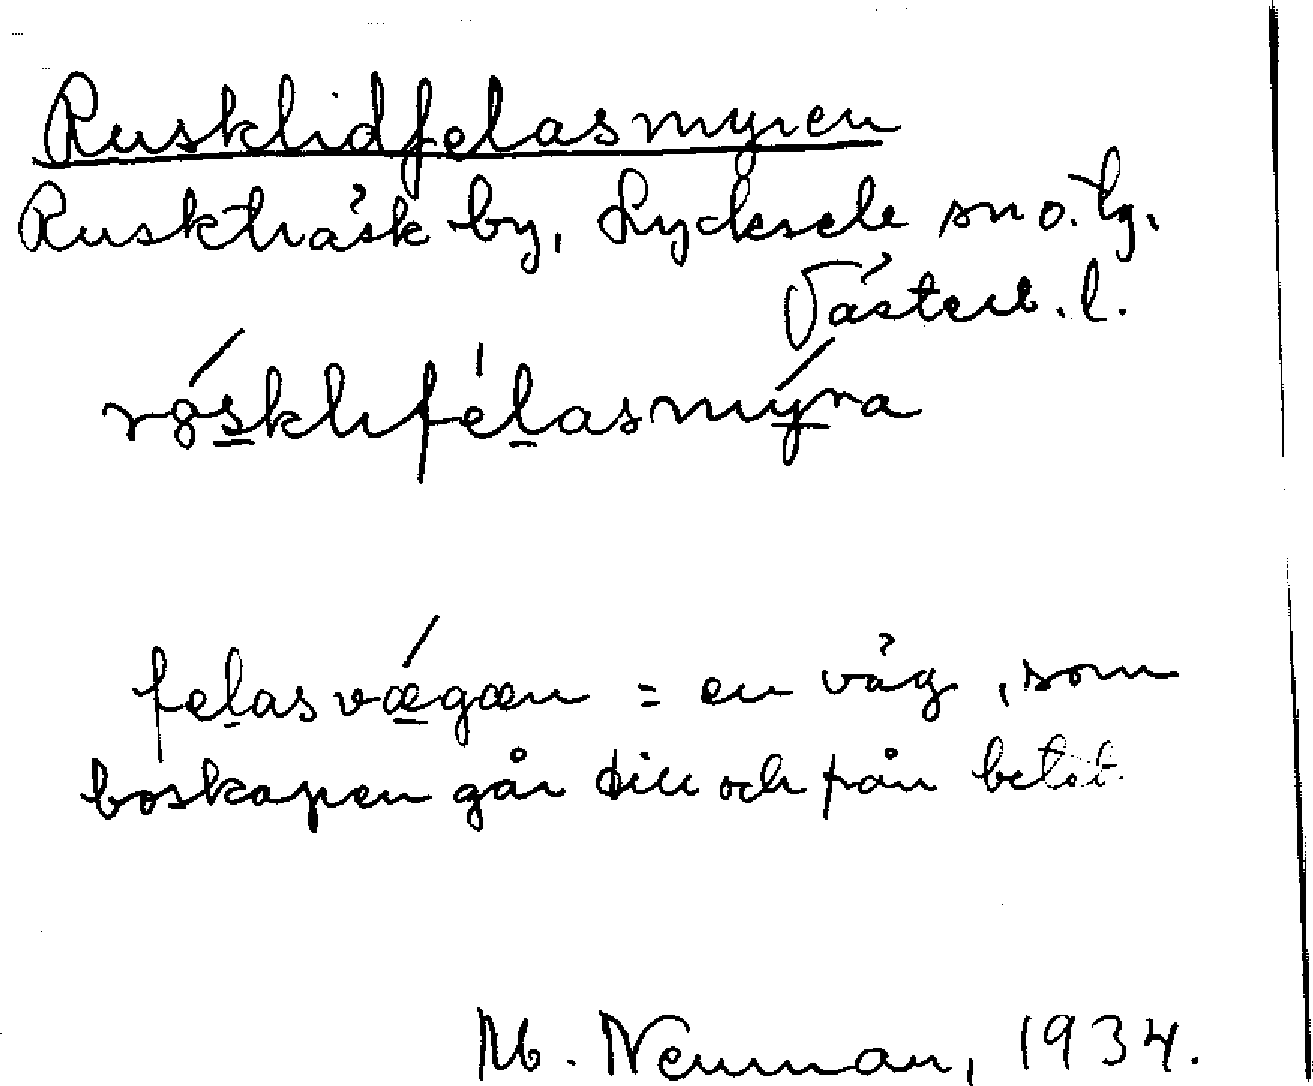 Rusklidfelasmyren
Ruskträsk by, Lycksele sn o. tg.
Västerb. l.
rösklifélasmýra
felasvǽgæn = en väg, som
boskapen går till och från betet.
M. Neuman, 1934.